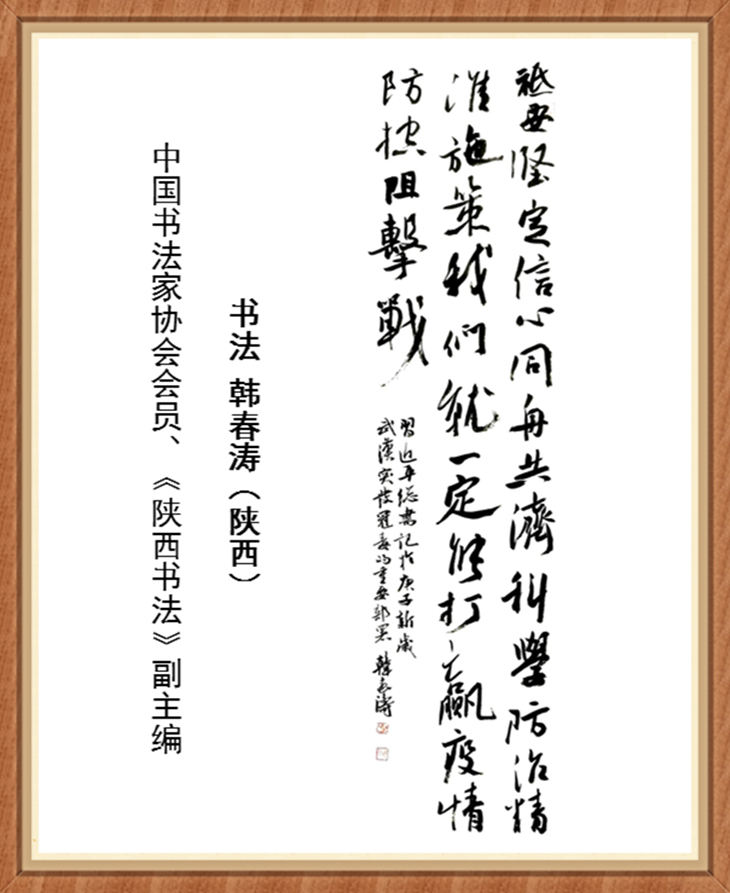 祗要堅定信心同舟共濟科學防治精
准施策我们就一定能打赢疫情
防控阻擊戰
習近平總書記於庚子新歲
武漢突發冠毒的重要部署 韓春濤
书法 韩春涛（陕西）
中国书法家协会会员、《陕西书法》副主编